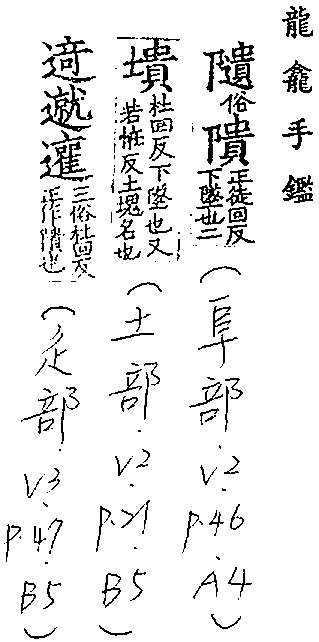 龍龕手鑑
隤俗隤正徒回反下墜也二
(阜部.V2.P.46.A4)
墤杜回反下墜也又若恠反土塊名也
(土部.V2.P.21.B5)
三俗杜回反正作隤也
(辵部.V3.P.49.B5)